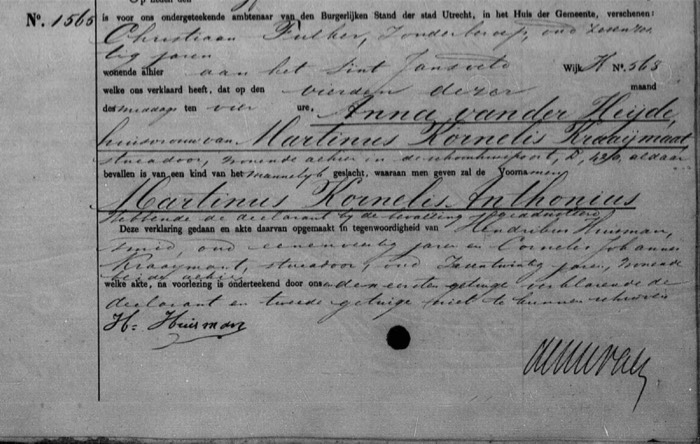 Op heden den
No. 1565 is voor ons ondergeteekende ambtenaar van den Burgerlijken Stand der stad Utrecht, in het Huis der Gemeente, verschenen:
Christiaan Zonderberoep, oud zesenzes
tig jaren
wonende alhier aan het Sint Jansveld Wijk K No. 568
welke ons verklaard heeft, dat op den vierden dezer maand
des middags ten vier ure, Anna van der Heijde,
huisvrouw van Martinus Kornelis Kraaijmaat
stucadoor, wonende alhier in de aldaar
bevallen is van een kind van het mannelijk geslacht, waaraan men geven zal de Voornamen
Martinus Kornelis Anthonius
hebbende de declarant bij de bevalling geadsisteerd
Deze verklaring gedaan en akte daarvan opgemaakt in tegenwoordigheid van Hendrikus Huisman,
smid, oud eenenveertig jaren en Cornelis Johannes
Kraaymant, stucadoor, oud zesentwintig jaren, wonende
beide alhier
welke akte, na voorlezing is onderteekend door ons en den eersten getuige verklarende de
declarant en tweede getuige niet te kunnen schrijven
H. Huisman